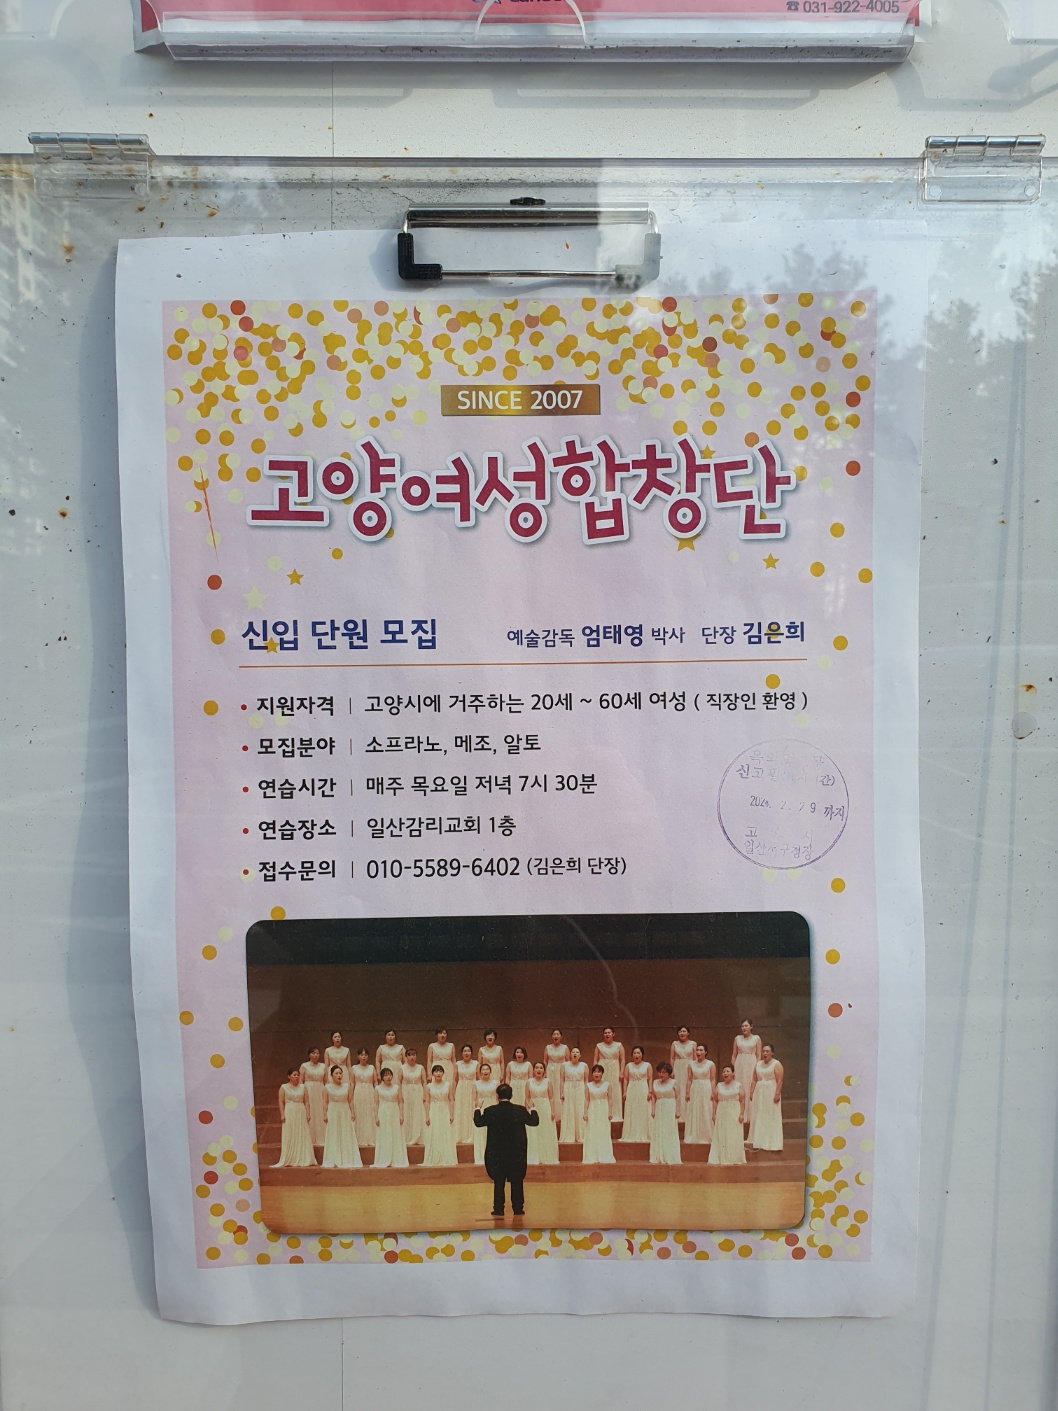 ☎ 031-922-4005
SINCE 2007
고양여성합창단
신입 단원 모집 예술감독 엄태영 박사 단장 김은희
• 지원자격 | 고양시에 거주하는 20세 ~ 60세 여성 ( 직장인 환영 )
• 모집분야 | 소프라노, 메조, 알토
• 연습시간 | 매주 목요일 저녁 7시 30분
• 연습장소 | 일산감리교회 1층
• 접수문의 | 010-5589-6402 (김은희 단장)
까지